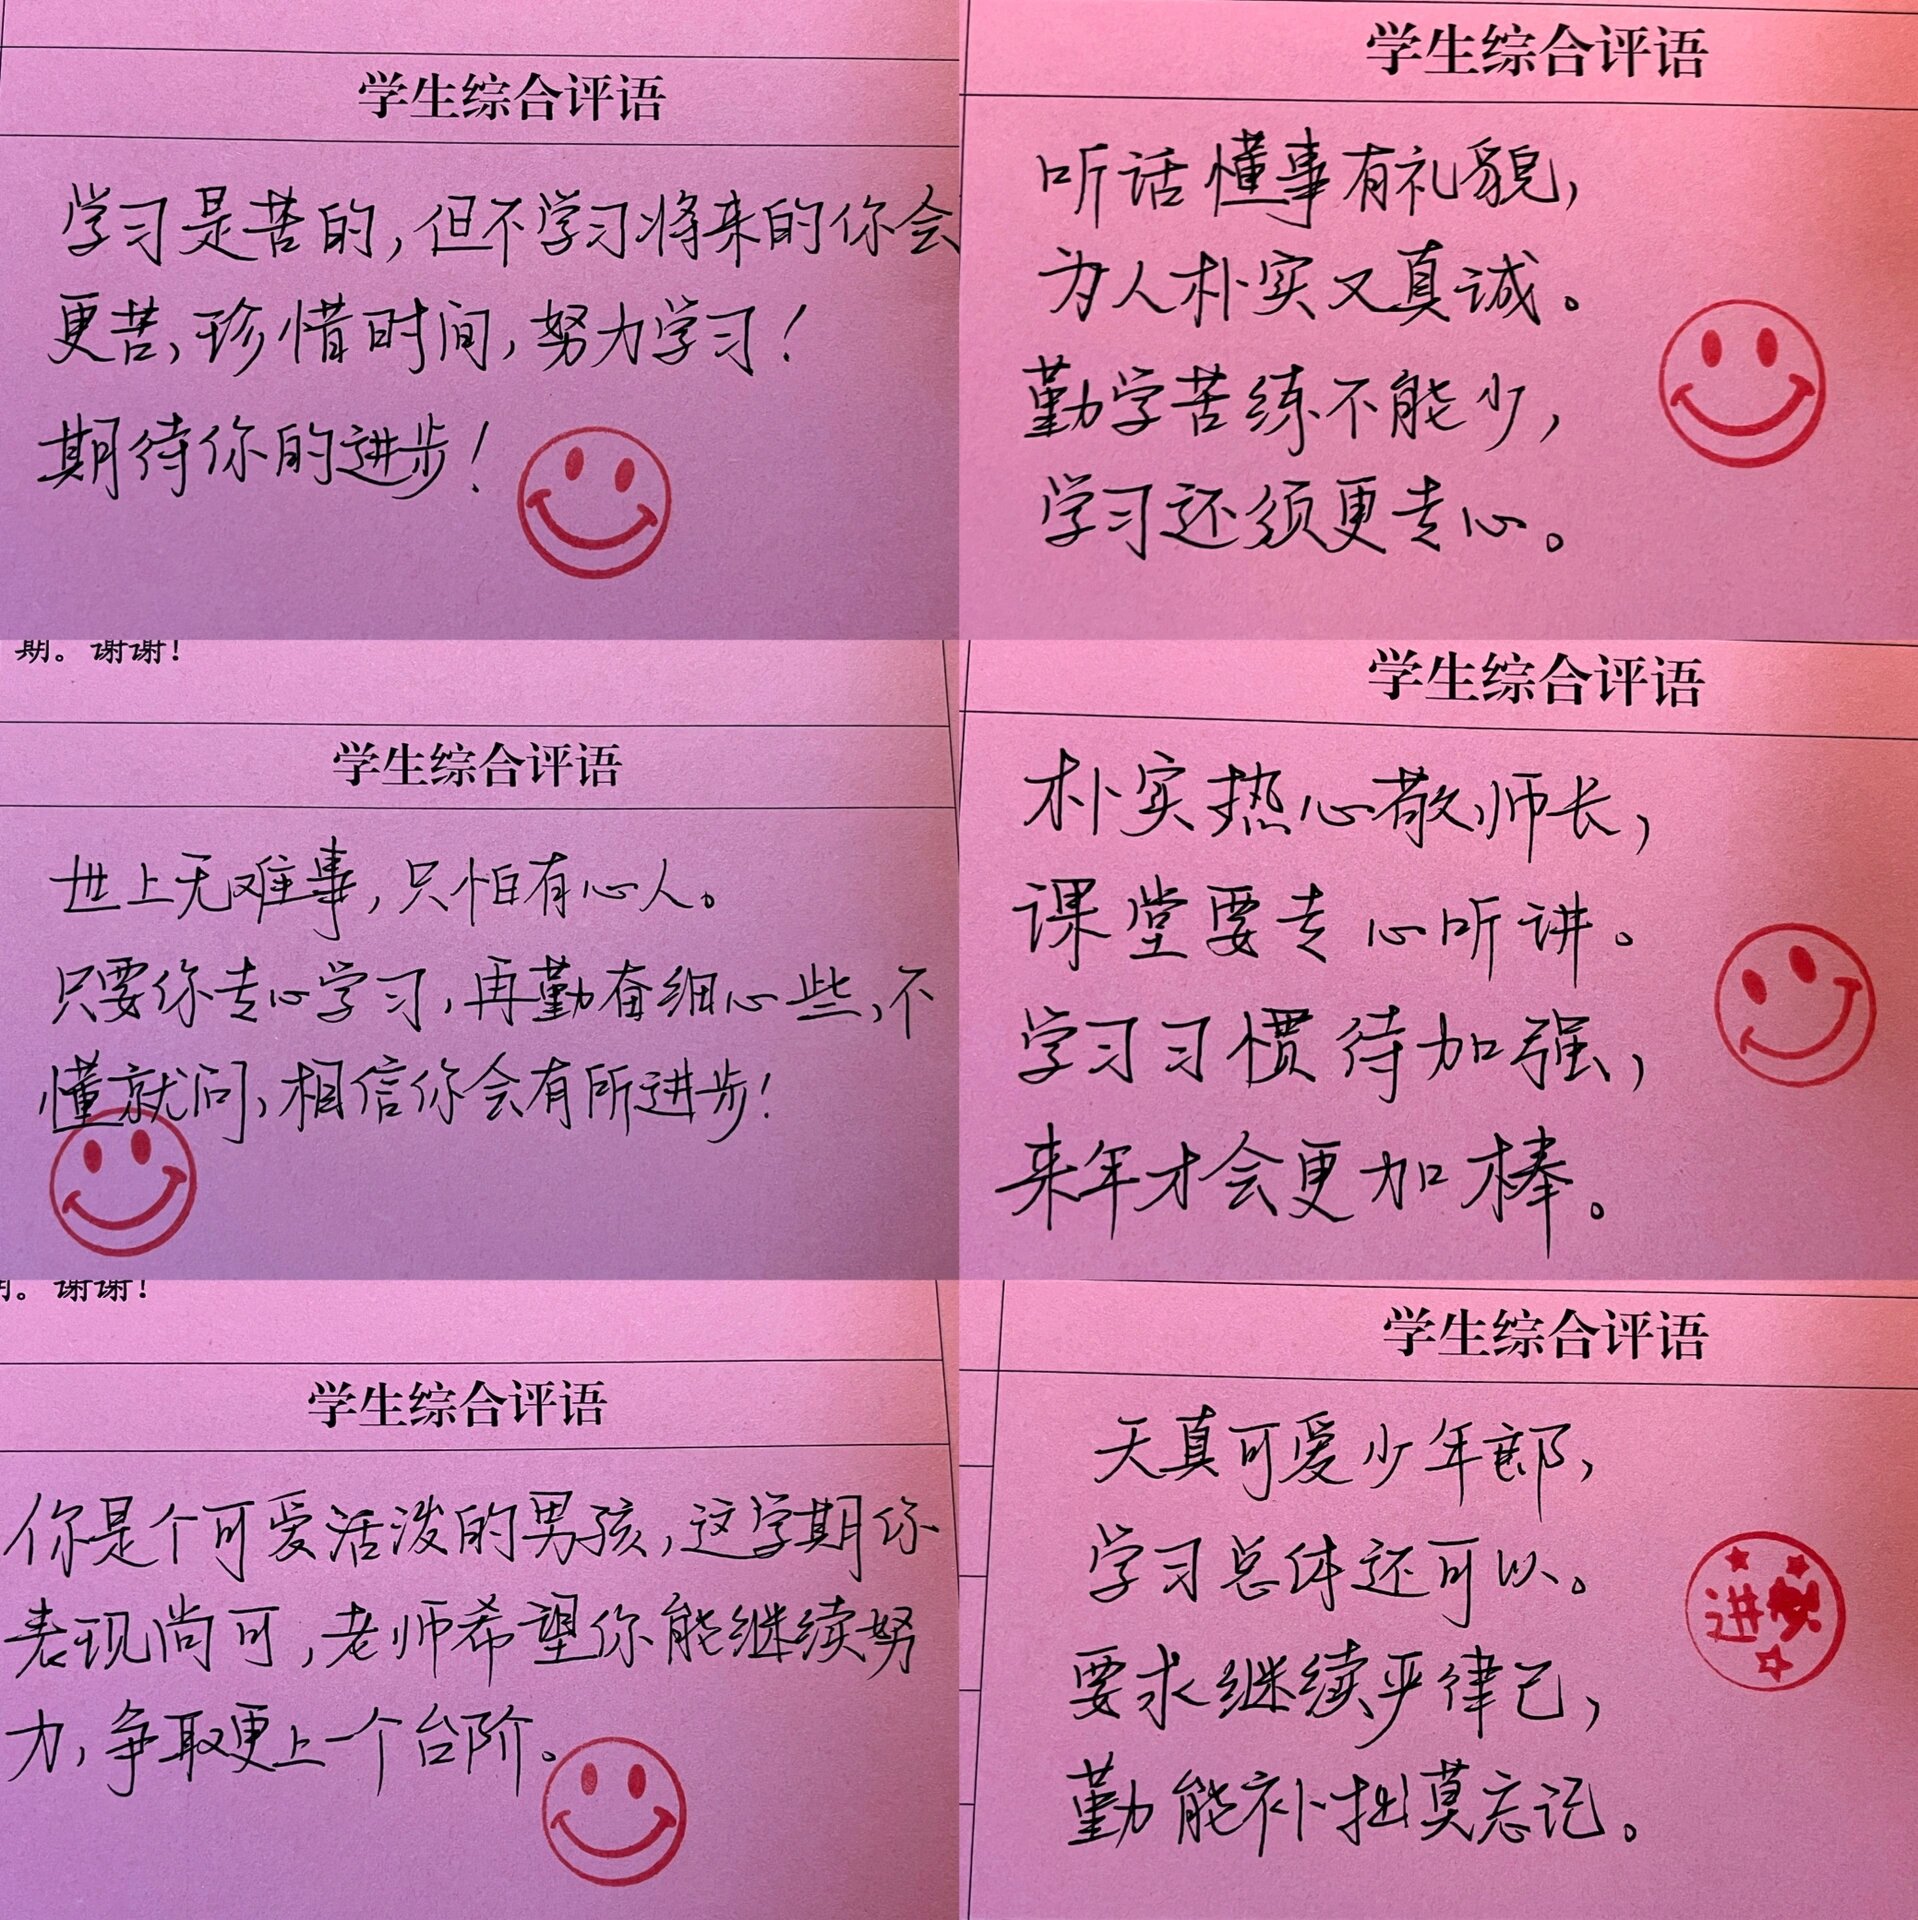 学生综合评语
学习是苦的,但不学习将来的你会
更苦,珍惜时间,努力学习!
期待你的进步!
学生综合评语
听话懂事有礼貌,
为人朴实又真诚。
勤学苦练不能少,
学习还须更专心。
期。谢谢!
学生综合评语
世上无难事,只怕有心人。
只要你专心学习,再勤奋细心些,不
懂就问,相信你会有所进步!
学生综合评语
朴实热心敬师长,
课堂要专心听讲。
学习习惯待加强,
来年才会更加棒。
期。谢谢!
学生综合评语
你是个可爱活泼的男孩,这学期你
表现尚可,老师希望你能继续努
力,争取更上一个台阶。
学生综合评语
天真可爱少年郎,
学习总体还可以。
要求继续严律己,
勤能补拙莫忘记。
进